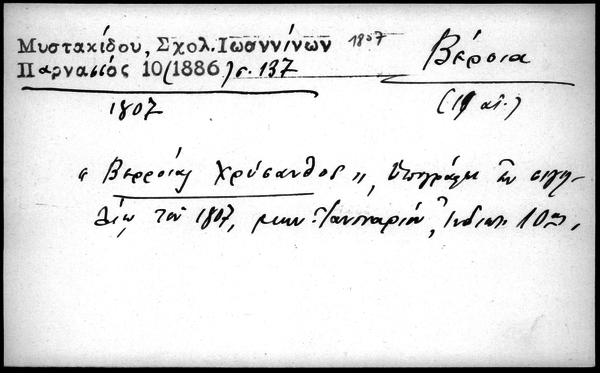 Μυστακίδου, Σχολ. Ιωαννίνων 1807
Παρνασσός 10(1886) σ. 137
Βέροια
(19 αι.)
1807
"Βερροίας Χρύσανθος", Υπογράφει εν σιγιλ-
λίῳ τοῦ 1807, μηνὶ Ἰανουαρίου, Ἰνδικτ. 10ης.